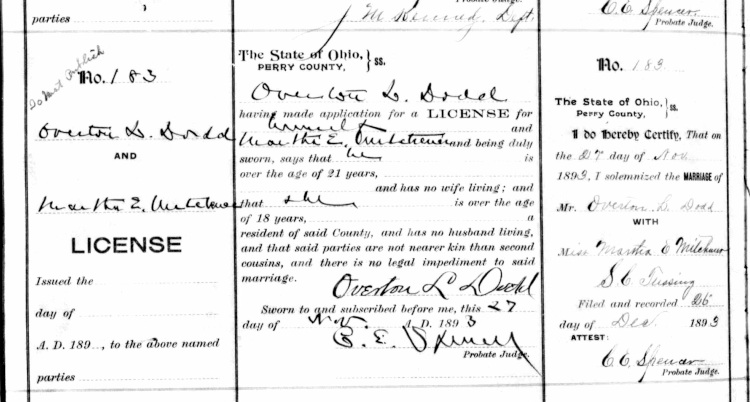 parties
Do Not Publish
No. 183
Overton L. Dodd
AND
Martha E.
LICENSE
Issued the
day of
A. D. 189 , to the above named
parties
J M Kennedy, Dept.
The State of Ohio, } ss.
PERRY COUNTY,
Overton L. Dodd
having made application for a LICENSE for
himself and
Martha E. and being duly
sworn, says that he is
over the age of 21 years,
and has no wife living; and
that she is over the age
of 18 years, a
resident of said County, and has no husband living,
and that said parties are not nearer kin than second
cousins, and there is no legal impediment to said
marriage.
Overton L Dodd
Sworn to and subscribed before me, this 27
day of Nov. A. D. 1893
C. E. Spencer
Probate Judge.
C. C. Spencer
Probate Judge.
No. 183
The State of Ohio, } ss.
Perry County,
I do Hereby Certify, That on
the 27 day of Nov
1893, I solemnized the MARRIAGE of
Mr. Overton L. Dodd
WITH
Miss Martha E
S. C. Tussing
Filed and recorded 26
day of Dec. 1893
ATTEST:
C. C. Spencer
Probate Judge.